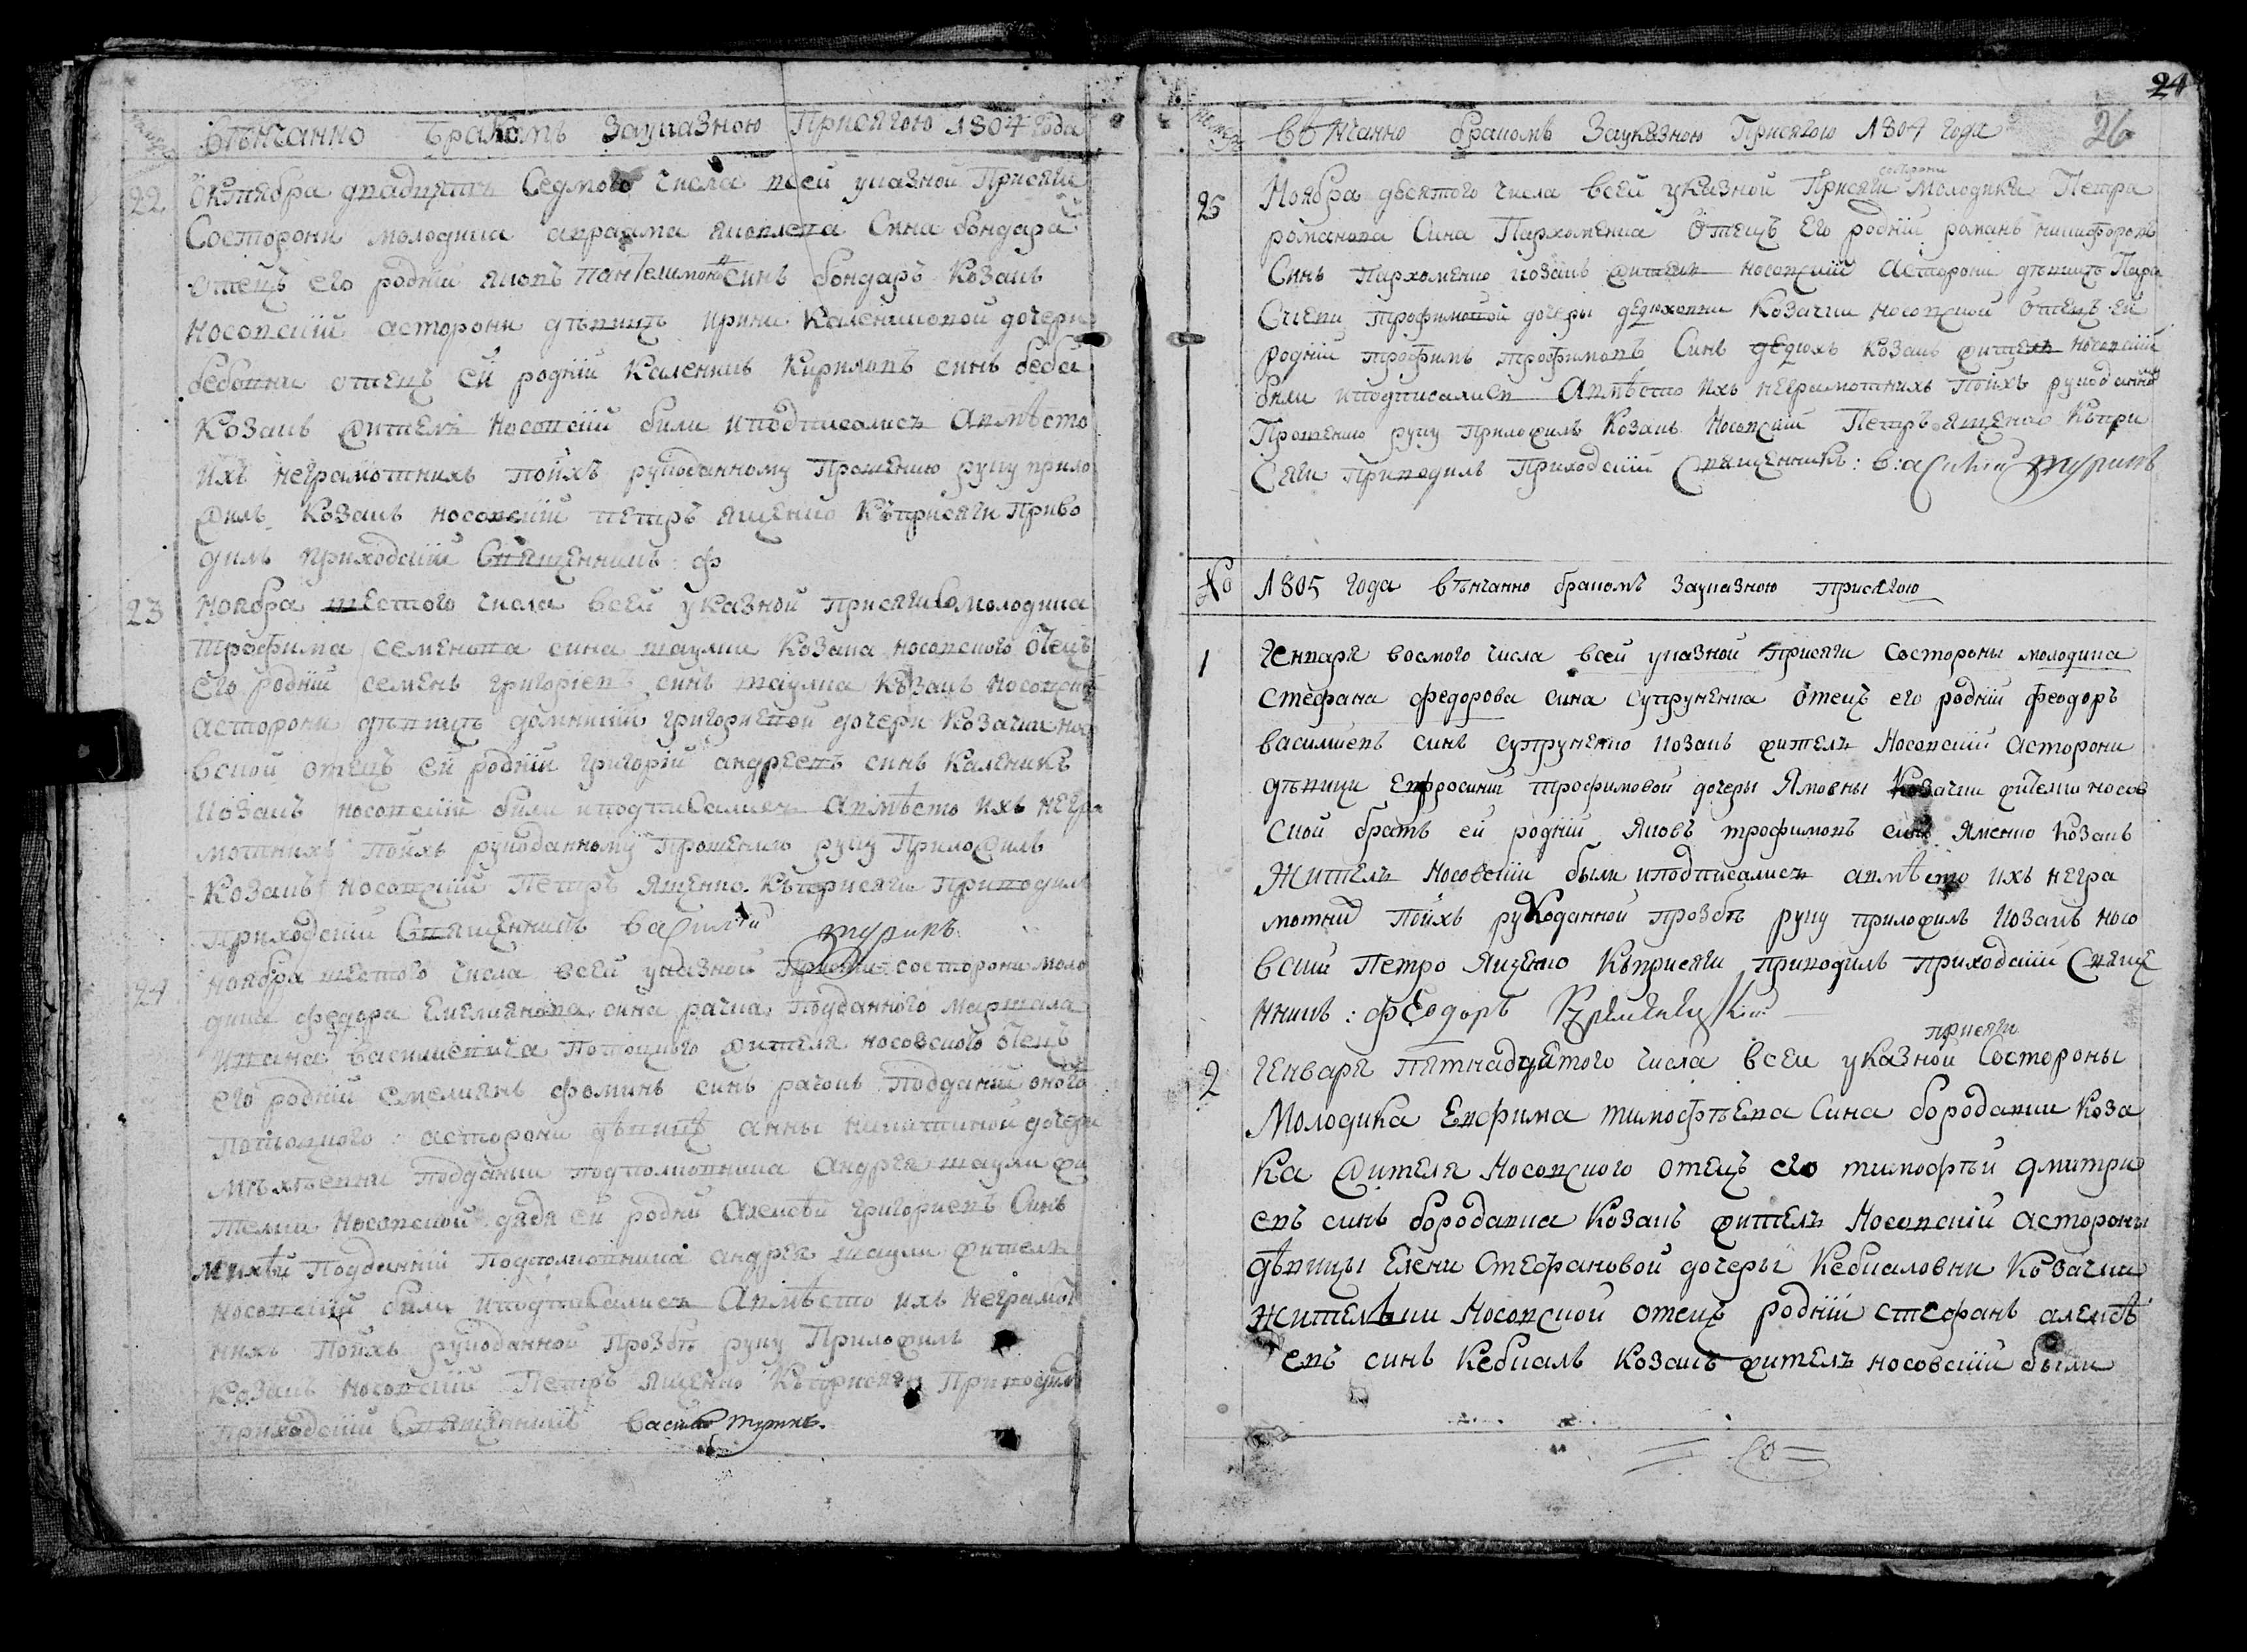 номеръ
Вѣнчанно Бракомъ Зауказною Присягою 1804 года
22
Октября двадцять Седмого числа всей указной Присяги
Состорони молодика авраама яковлева Сина бондара
отецъ его родній яковъ Пантелимоновъ синъ бондаръ Козакъ
носовскій асторони дѣвицъ ирини Калениковой дочери
бебовни отецъ ей родній Каленикъ Кириловъ синъ беба
Козакъ жителъ Носовскій били иподписалися Авмѣсто
ихъ неграмотнихъ поихъ рукоданному Прошению руку прило
жилъ Козакъ носовскій петръ ященко Къприсяги Приво
дилъ приходскій Священникъ: ф
23
Ноября шестого числа всей указной присяги Со молодика
трофима семенова сина шаулки Козака носовского отецъ
Его родній семенъ григориевъ синъ шаулка Козакъ Носовскій
асторони дѣвицъ домникіи григориевой дочери Козачки носо
вской отецъ ей родній григорій андреевъ синъ Каленикъ
Козакъ носовскій били иподписались Авмѣсто ихъ негра
мотнихъ поихъ рукоданному Прошению руку Приложилъ
Козакъ Носовскій Петръ ященко. Къприсяги Приводилъ
Приходскій Священникъ Василій туринъ
24
ноября шестого числа всей указной Присяги состорони моло
дика федора Емелиянова сина рачка подданного маршала
ивана василиевича Потоцкого жителя носовского отецъ
его родній емелиянъ фоминъ синъ рачокъ Подданій оного
Потоцкого: асторони дѣвицѣ анны никитиной дочери
михѣевни поддании подполковника Андрея шаули жи
телки Носовской дядя ей родній Алексѣй григориевъ Синъ
михѣй Подданній подполковника андрея шаули жителъ
носовскій били иподписались Авмѣсто ихъ Неграмот
нихъ поихъ рукоданной прозбѣ руку Приложилъ
Козакъ носовскій Петръ ященко Къприсяги Приводилъ
приходскій Священникъ василій туринъ.
24
26
номеръ
вѣнчанно бракомъ Зауказною Присягою 1804 года
25
Ноября девятого числа всей указной Присяги состорони Молодика Петра
романова Сина Пархоменка Отецъ Его родній романъ никифоровъ
Синъ Пархоменко козакъ жителъ носовскій асторони дѣвицъ Пара
Скеви трофимовой дочеры дедюховни Козачки носовской отецъ ей
родній трофимъ трофимовъ Синъ дедюхъ козакъ жителъ Носовскій
били иподписались Авмѣсто ихъ неграмотнихъ Поихъ рукоданному
Прошению руку приложилъ Козакъ Носовскій Петръ ященко Къпри
Сяги Приводилъ Приходскій Священникъ: василій туринъ
No 1805 года вѣнчанно бракомъ Зауказною присягою
1
Генваря восмого числа всей указной Присяги Состороны молодика
Стефана федорова сина Супруненка отецъ его родній феодоръ
василиевъ синъ супруненко козакъ жителъ Носовскій асторони
дѣвици Ефросиніи трофимовой дочеры Яковны Козачки жителки носов
ской братъ ей родній Яковъ трофимовъ синъ Яменко Козакъ
Жителъ Носовскій были иподписались авмѣсто ихъ негра
мотнихъ поихъ рукоданной прозбѣ руку приложилъ Козакъ носо
вский Петро Ященко Къприсяги приводилъ приходскій Свяще
нникъ: феодоръ
2
Генваря пятнадцятого числа всей указной присяги Состороны
Молодика Евфима тимофѣева Сина бородавки коза
ка жителя Носовского отецъ его тимофѣй дмитри
евъ синъ бородавка Козакъ жителъ Носовскій асторони
дѣвицы Елени Стефановой дочеры Кебкаловни Козачки
Жителки Носовской отецъ родній стефанъ алексѣ
евъ синъ Кебкалъ Козакъ жителъ носовскій были